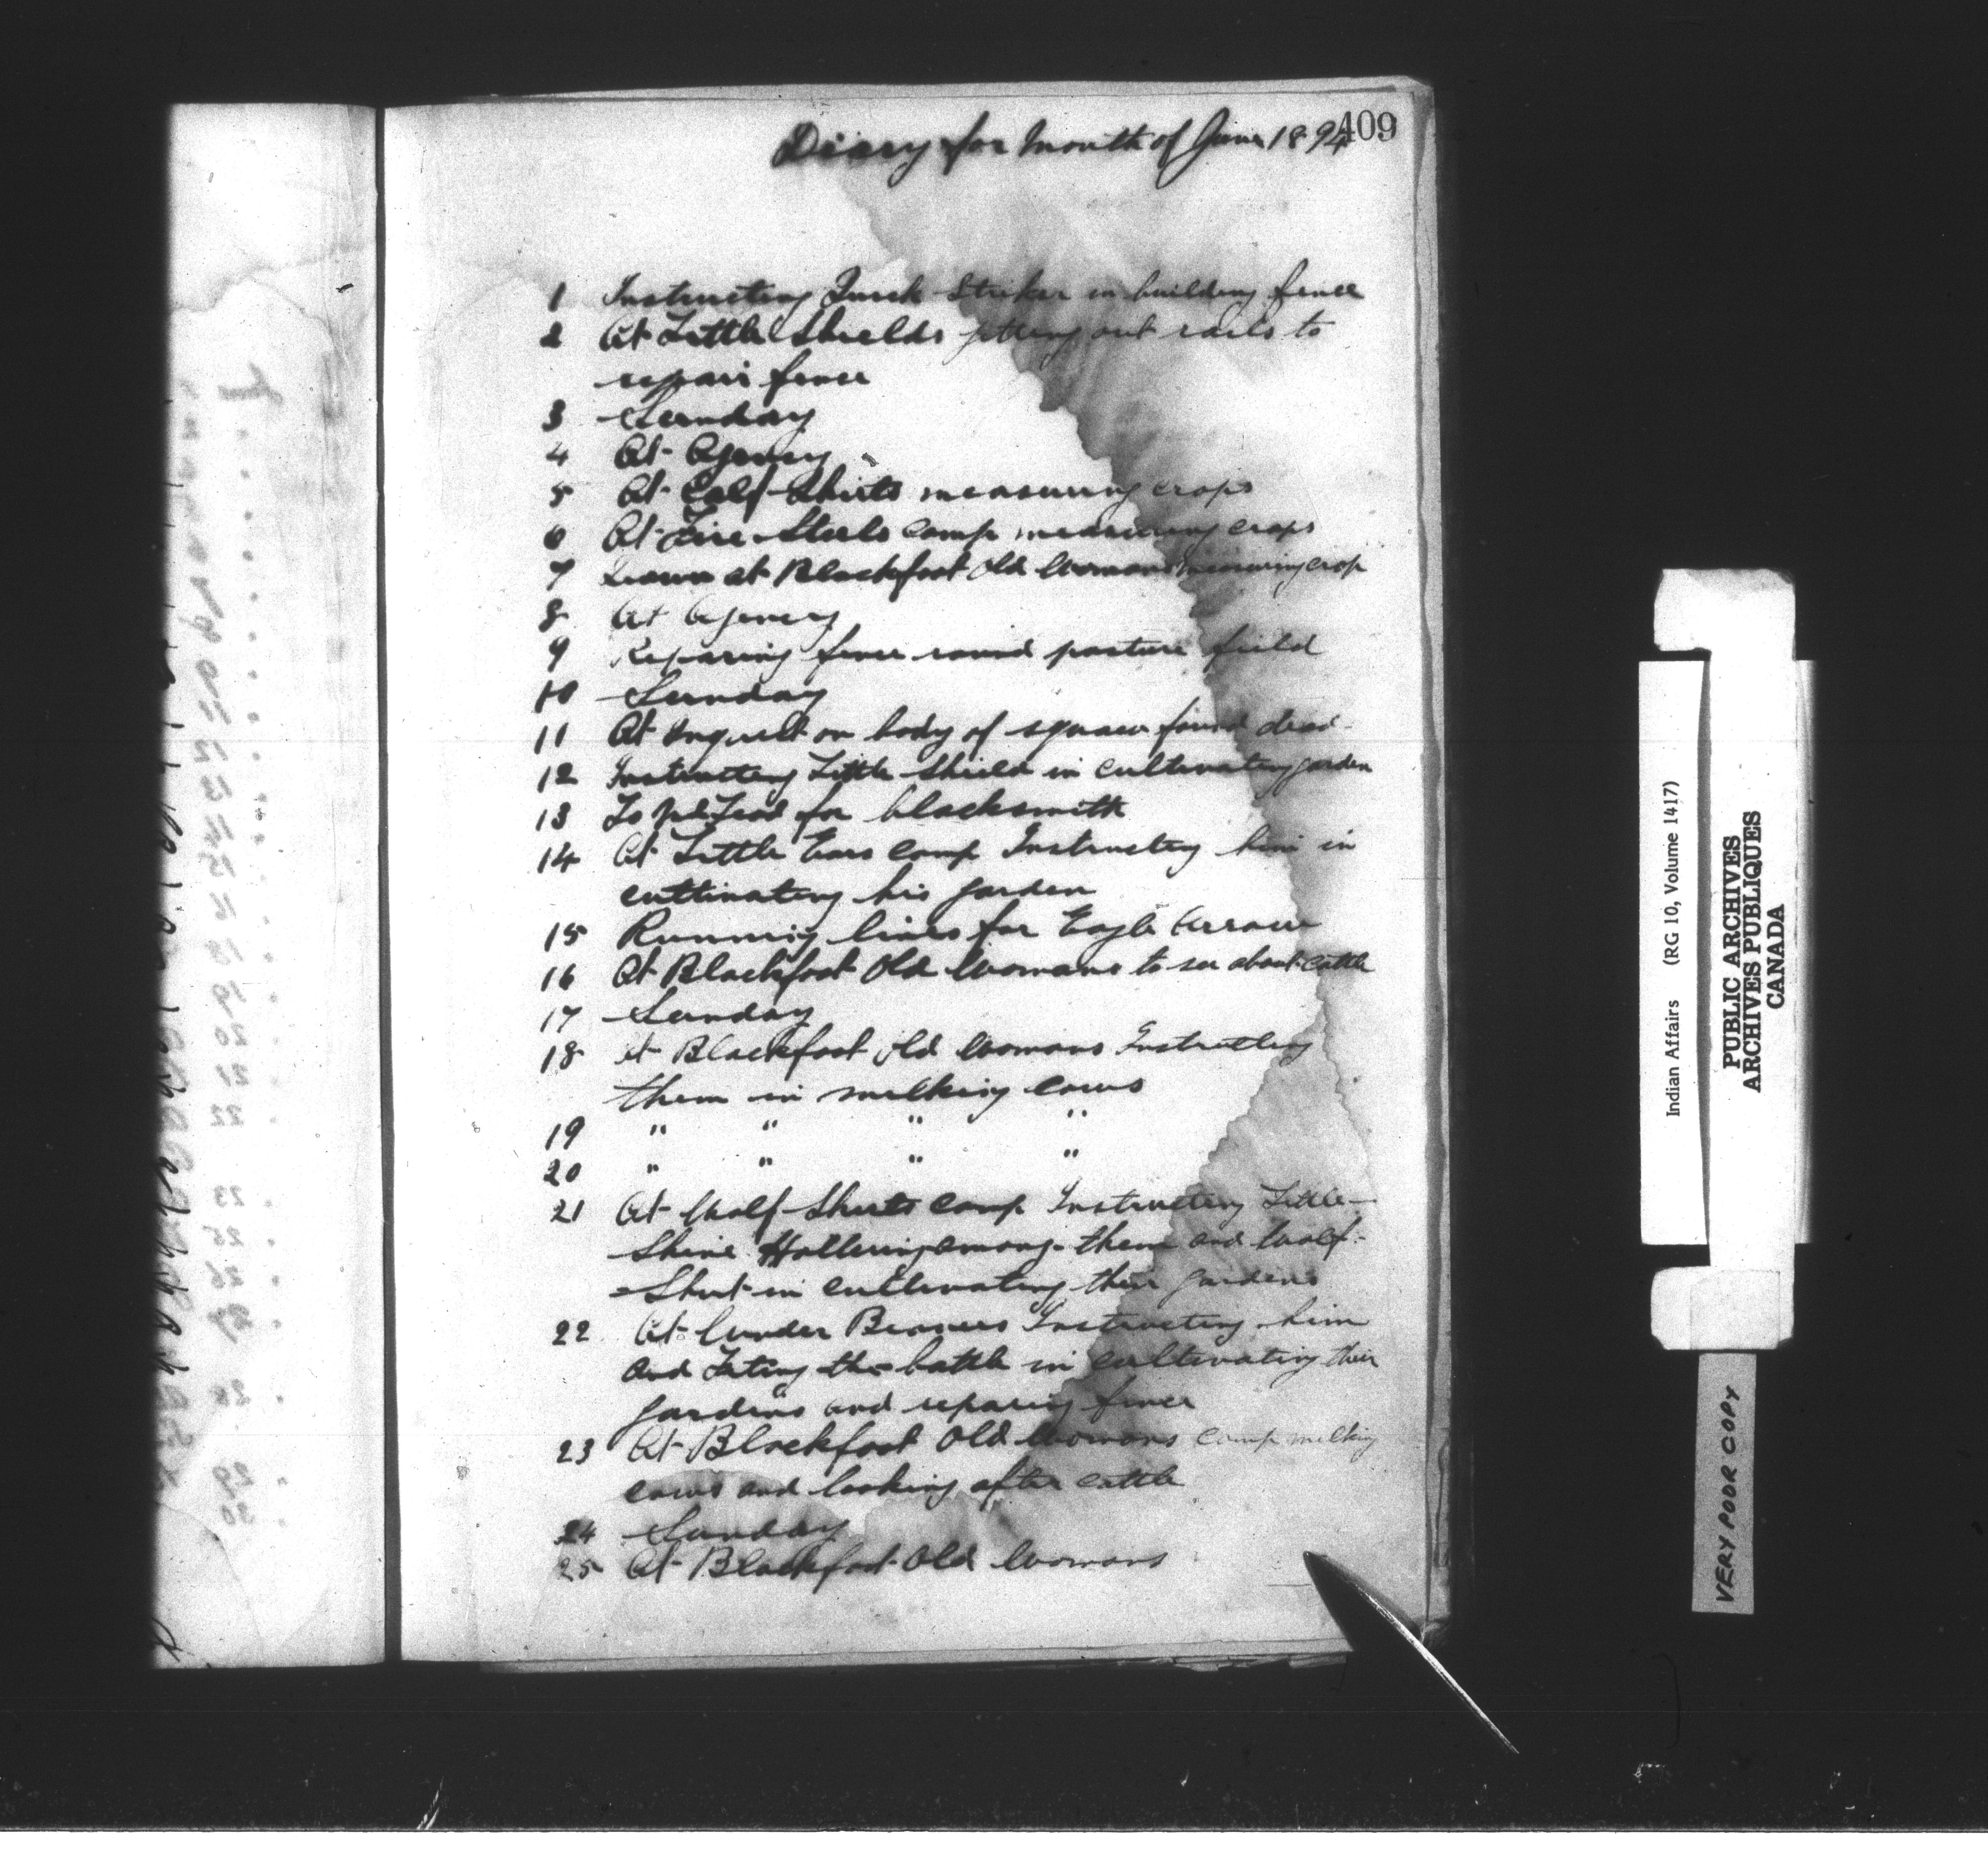 409
Diary for month of June 1894
1 Instructing Quick Striker in building fence
2 At Little Shields getting out rails to
repair fence
3 Sunday
4 At Agency
5 At Calf Shirts measuring crops
6 At Fire Steels camp measuring crops
7 Down at Blackfoot Old Womans measuring crop
8 At Agency
9 Repairing fence round pasture field
10 Sunday
11 At Inquest on body of squaw found dead
12 Instructing Little Shield in cultivating garden
13 To McLeod for blacksmith
14 At Little Ears camp Instructing him in
cultivating his garden
15 Running lines for Eagle Arrow
16 At Blackfoot Old Womans to see about cattle
17 Sunday
18 At Blackfoot Old Womans Instructing
them in milking cows
19 " " " "
20 " " " "
21 At Calf Shirts camp Instructing Little
Shine Hollering among them and Calf
Shirt in cultivating their gardens
22 At Under Instructing him
and the battle in cultivating their
gardens and repairing fence
23 At Blackfoot Old Womans camp milking
cows and looking after cattle
24 Sunday
25 At Blackfoot Old Womans
Indian Affairs (RG 10, Volume 1417)
PUBLIC ARCHIVES
ARCHIVES PUBLIQUES
CANADA
VERY POOR COPY